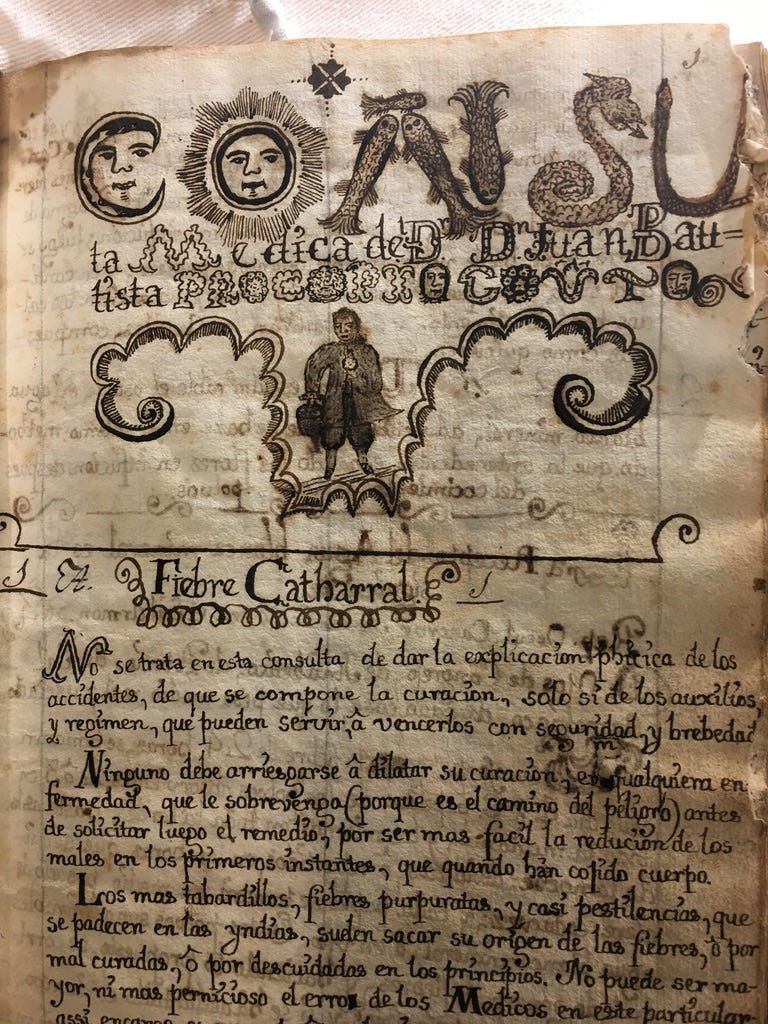 1
CONSUL
ta Medica del Dr. Dn. Juan Baut=
tista
1 Et. Fiebre Catharral. 1
No se trata en esta consulta de dar la explicacion phicica de los
accidentes, de que se compone la curacion, solo si de los auxilios,
y regimen, que pueden servir, â vencerlos con seguridad, y brebedad
Ninguno debe arriesgarse â dilatar su curacion, en qualquiera en
fermedad, que le sobrevenga (porque es el camino del peligro) antes
de solicitar luego el remedio; por ser mas facil la reducion de los
males en los primeros instantes, que quando han cojido cuerpo.
Los mas tabardillos, fiebres purpuratas, y casi pestilencias, que
se padecen en las yndias, suelen sacar su origen de las fiebres, ô por
mal curadas, ô por descuidadas en los principios. No puede ser ma-
yor, ni mas pernicioso el error de los Medicos en este particular.
assi